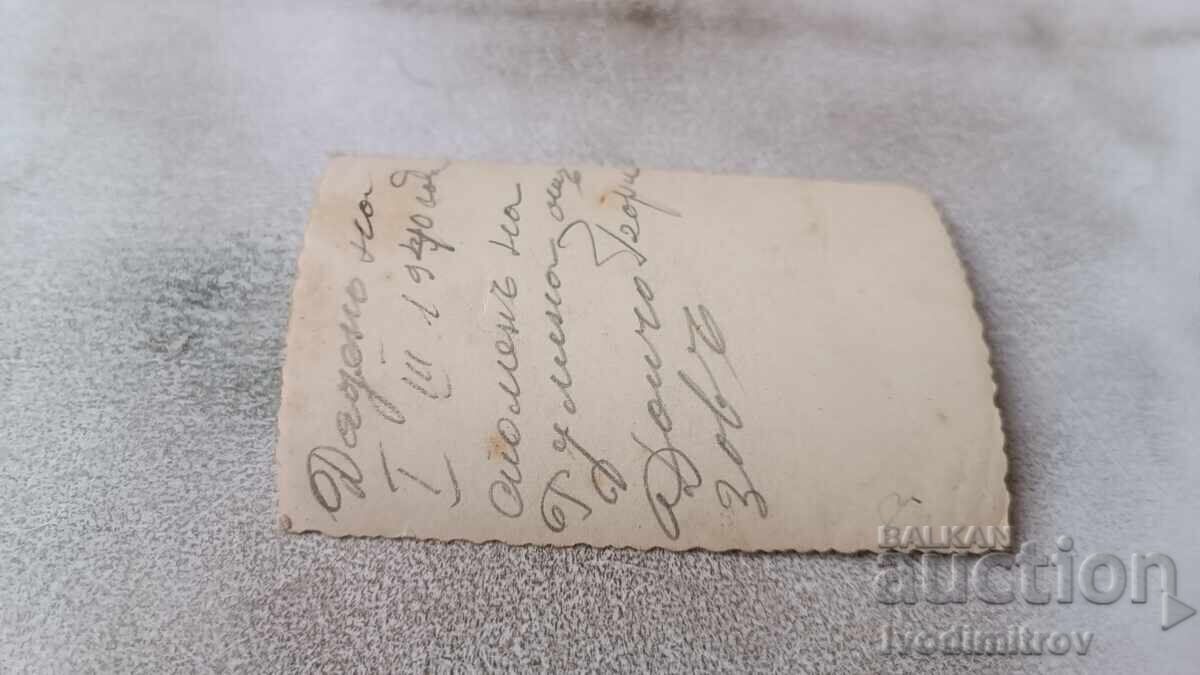 Дадено на
I III 1940 год
споменъ на
Гулмина отъ
Дончо Георги
зовъ
BALKAN
auction
Ivodimitrov